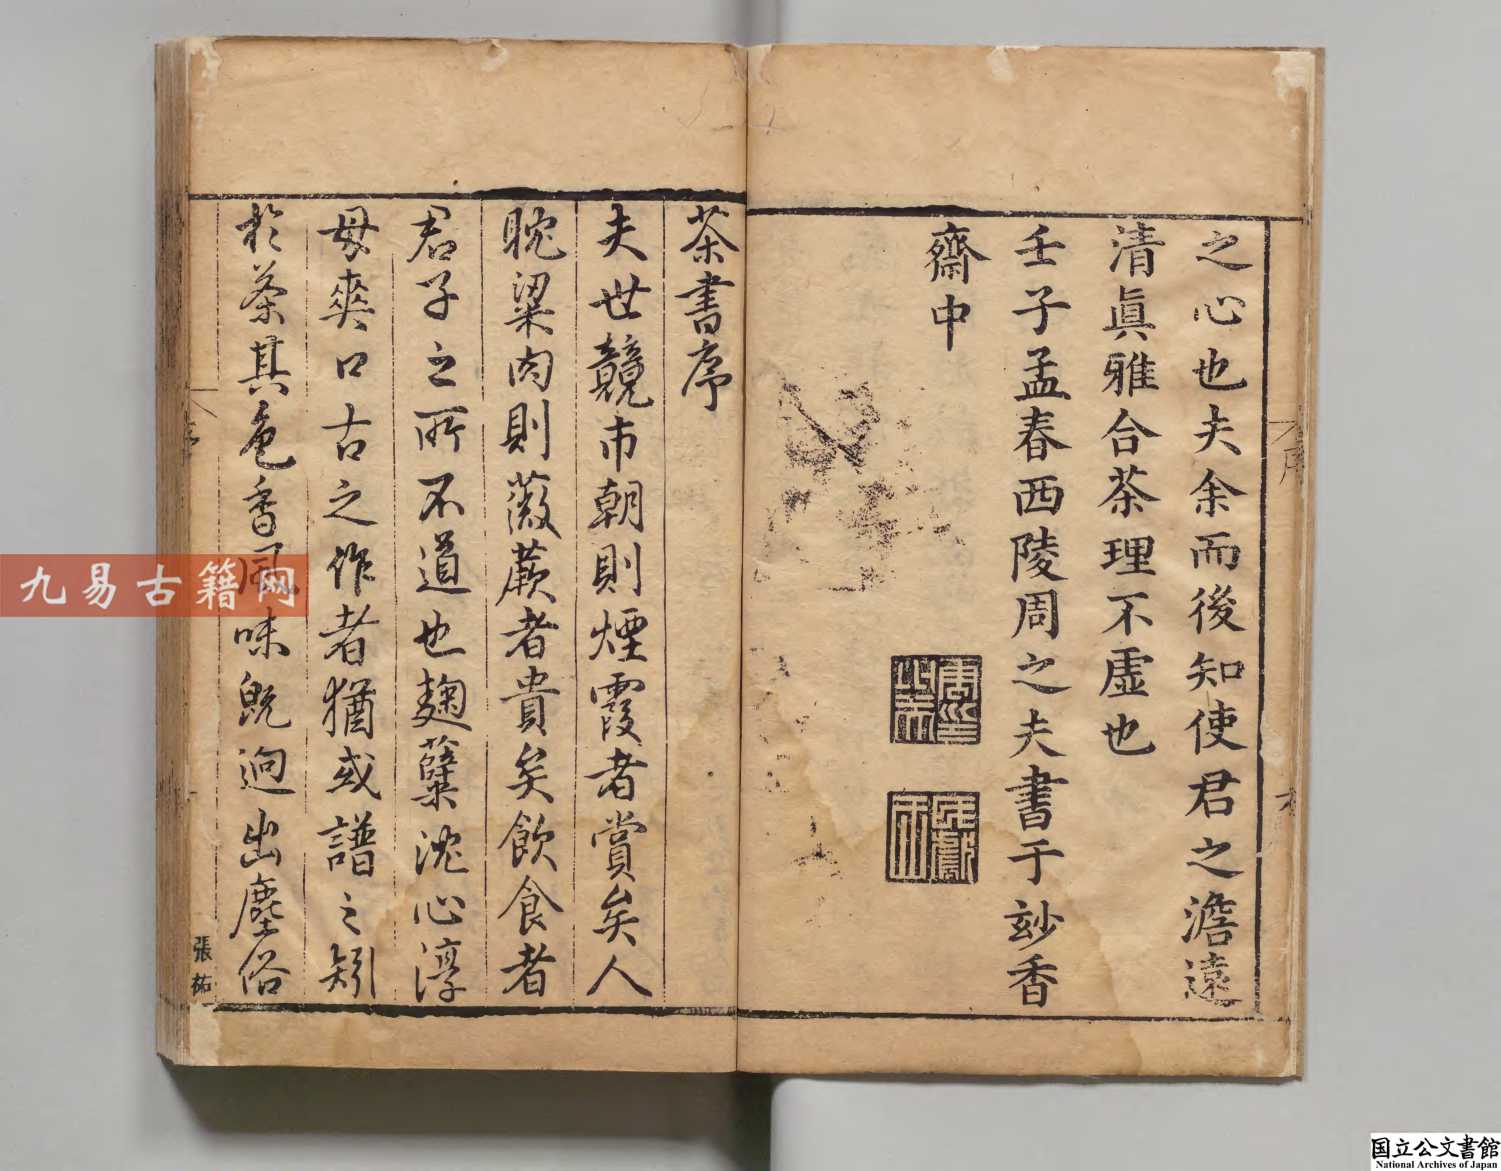 之心也夫余而後知使君之澹遠
清眞雅合茶理不虛也
壬子孟春西陵周之夫書于玅香
齋中
茶書序
夫世競市朝則煙霞者賞矣人
耽粱肉則薇蕨者貴矣飲食者
君子之所不道也麹蘖沈心淳
母爽口古之作者猶或譜之矧
於茶其色香風味旣逈出塵俗
張祐
九易古籍网
国立公文書館
National Archives of Japan